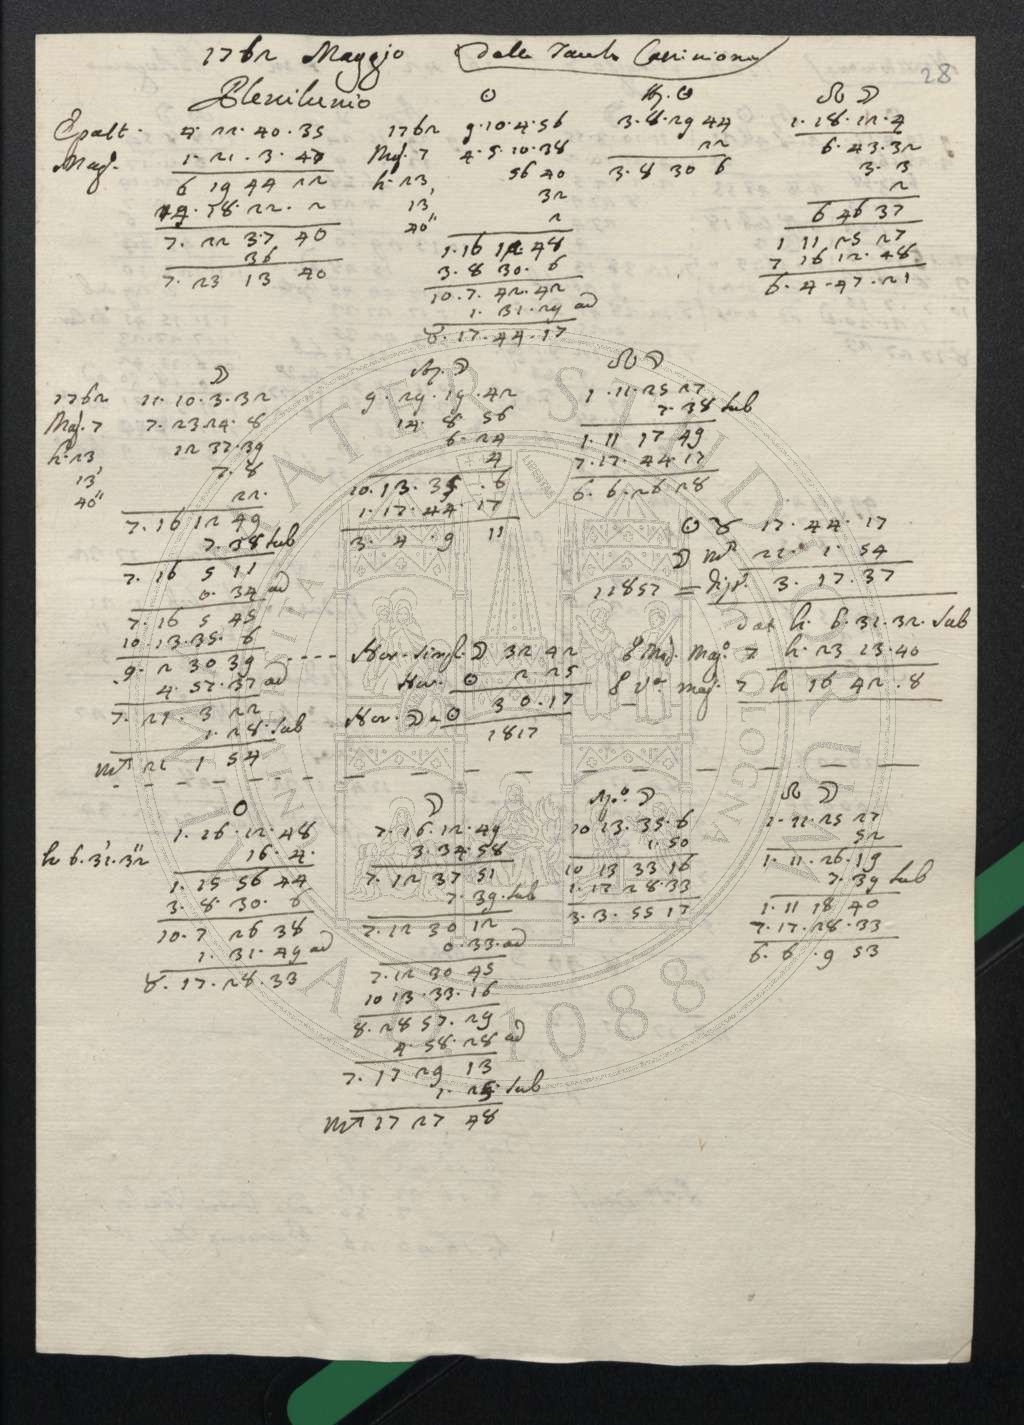 1762 Maggio Dalle Tavole Cassiniane
28
Plenilunio ☉ Ap. ☉ ☊ ☽
Epatt. 4. 22. 40. 35 1762 9. 10. 4. 56 3. 8. 29 44 1. 18. 12. 4
Mag. 1. 21. 3. 47 Mag. 7 4. 5. 10. 38 22 6. 43. 32
6 19 44 22 h. 23 56 40 3. 8 30 6 3. 3
18. 22. 2 13' 32 2
7. 22 37 40 40" 2 6 46 37
36 1. 16 12. 48 1 11 25 27
7. 23 13 40 3. 8 30. 6 7 16 12. 48
10. 7. 42. 42 6. 4. 47. 21
1. 31. 29 ad
♉. 17. 44. 17
☽ Ap. ☽ ☊ ☽
1762 11. 10. 3. 32 9. 29. 19. 42 1. 11. 25 27
Mag. 7 7. 23 24. 8 14. 8 56 7. 38 sub
h. 23 12 37. 39 6. 24 1. 11 17 49
13' 7. 8 4 7. 17. 44. 17
40" 22. 10. 13. 35. 6 6. 6. 26 28
7. 16 12 49 1. 17. 44. 17
7. 38 sub 3. 4. 9 11
7. 16 5 11
0. 34 ad
7. 16 5 45
10. 13. 35. 6
9. 2 30 39
4. 57. 37 ad
7. 21. 3 22
1. 28. sub
♏ 21 1 54
☉ ♉ 17. 44. 17
☽ ♏ 21. 1. 54
11857 = 3. 17. 37
dat h. 6. 31. 32. sub
Hor. simpl. ☽ 32 42 Mag. 7 h. 23 13. 40
Hor. ☉ 2 25 Mag. 7 h 16 42. 8
Hor. ☽ a ☉ 30. 17
1817
☉ ☽ Apo. ☽ ☊ ☽
1. 16. 12. 48 7. 16. 12. 49 10 13. 35. 6 1. 11. 25 27
h 6. 31'. 32" 16. 4. 3. 34. 58 1. 50 52
1. 15 56 44 7. 12 37 51 10 13 33 16 1. 11. 26. 19
3. 8. 30. 6 7. 39. sub 1. 17 28. 33 7. 39 sub
10. 7 26 38 7. 12 30 12 3. 3. 55 17 1. 11 18 40
1. 31. 49 ad 0. 33. ad 7. 17. 28. 33
♉. 17. 28. 33 7. 12 30 45 6. 6. 9 53
10 13. 33. 16
8. 28 57. 29
4. 58. 28 ad
7. 17 29 13
1. 25 sub
♏ 17 27 48
ALMA MATER STUDIORUM
A.D. 1088